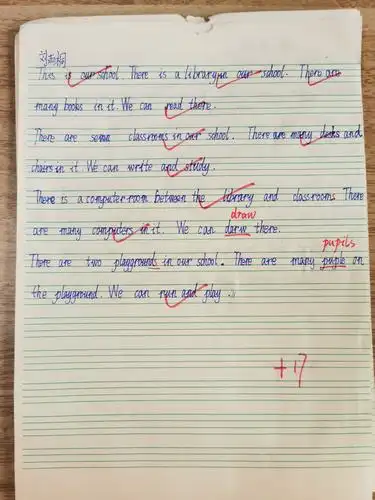 This is our school. There is a library in our school. There are
many books in it. We can read there.
There are seven classrooms in our school. There are many desks and
chairs in it. We can write and study.
There is a computer room between the library and classrooms. There
draw
are many computers in it. We can darw there.
pupils
There are two playgrounds in our school. There are many puple on
the playground. We can run and play.
+17